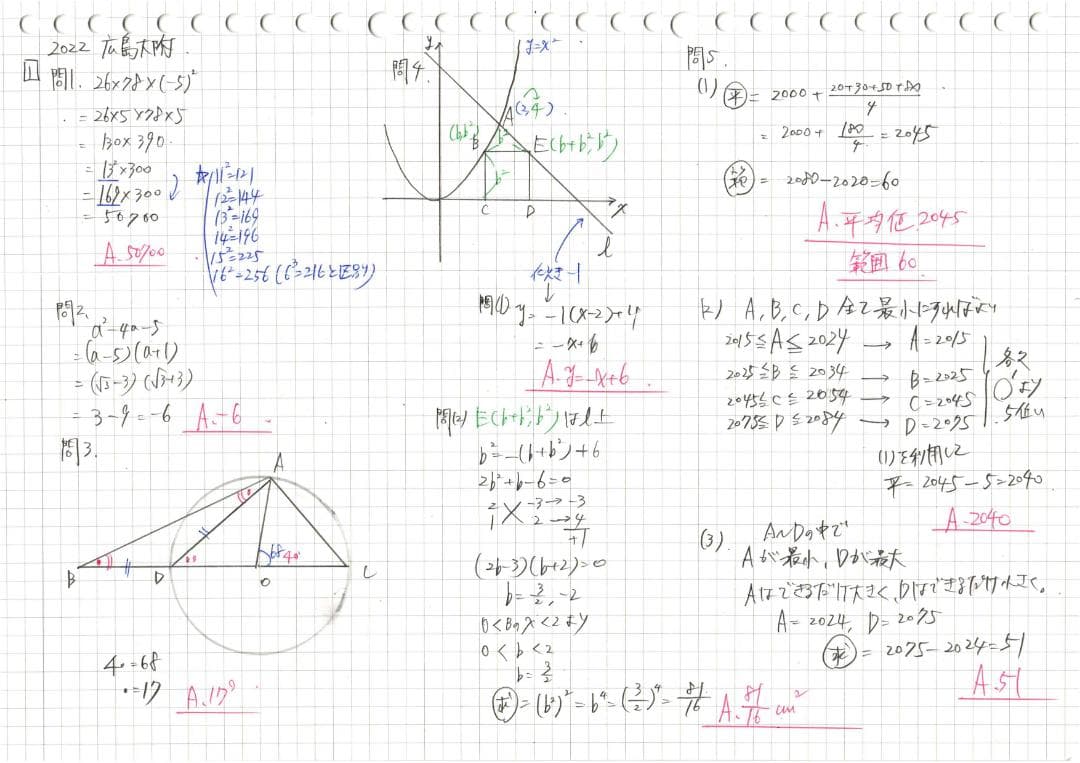 2022 広島大附
1
問1. 26×78×(-5)²
= 26×5×78×5
= 130×390
= 13²×300
= 169×300
= 50700
A. 50700
☆ 11²=121
12²=144
13²=169
14²=196
15²=225
16²=256 (6³=216と区別)
問2.
a²-4a-5
= (a-5)(a+1)
= (√3-3)(√3+3)
= 3-9=-6
A. -6
問3.
A
68 4•
B D O C
4•=68
•=17
A. 17°
問4.
y
y=x²
A (2,4)
(b,b²)
B b² E(b+b²,b²)
b²
C D x
l
傾き-1
問(1) y=-1(x-2)+4
= -x+6
A. y=-x+6
問(2) E(b+b²,b²)はl上
b²=-(b+b²)+6
2b²+b-6=0
2 -3→-3
1 2→4
+1
(2b-3)(b+2)=0
b=3/2, -2
0<Bのx<2より
0<b<2
b=3/2
求=(b²)²=b⁴=(3/2)⁴=81/16
A. 81/16 cm²
問5.
(1) 平=2000+(20+30+50+80)/4
=2000+180/4=2045
範=2080-2020=60
A. 平均値 2045
範囲 60
(2) A,B,C,D 全て最小にすればよい
2015≦A≦2024 → A=2015
2025≦B≦2034 → B=2025
2045≦C≦2054 → C=2045
2075≦D≦2084 → D=2075
各々
より
(1)を利用して
平=2045-5=2040
A. 2040
(3). A~Dの中で
Aが最小, Dが最大
Aはできるだけ大きく、Dはできるだけ小さく。
A=2024, D=2075
求=2075-2024=51
A. 51